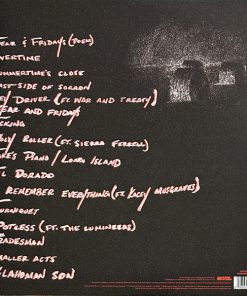 EAR & FRIDAYS (POEM)
VERTIME
UMMERTIME'S CLOSE
AST SIDE OF SORROW
EY DRIVER (FT. WAR AND TREATY)
EAR AND FRIDAYS
CKING
OLY ROLLER (FT. SIERRA FERRELL)
AKE'S PIANO / LONG ISLAND
L DORADO
REMEMBER EVERYTHING (FT. KACEY MUSGRAVES)
OURNIQUET
POTLESS (FT. THE LUMINEERS)
RADESMAN
MALLER ACTS
KLAHOMAN SON